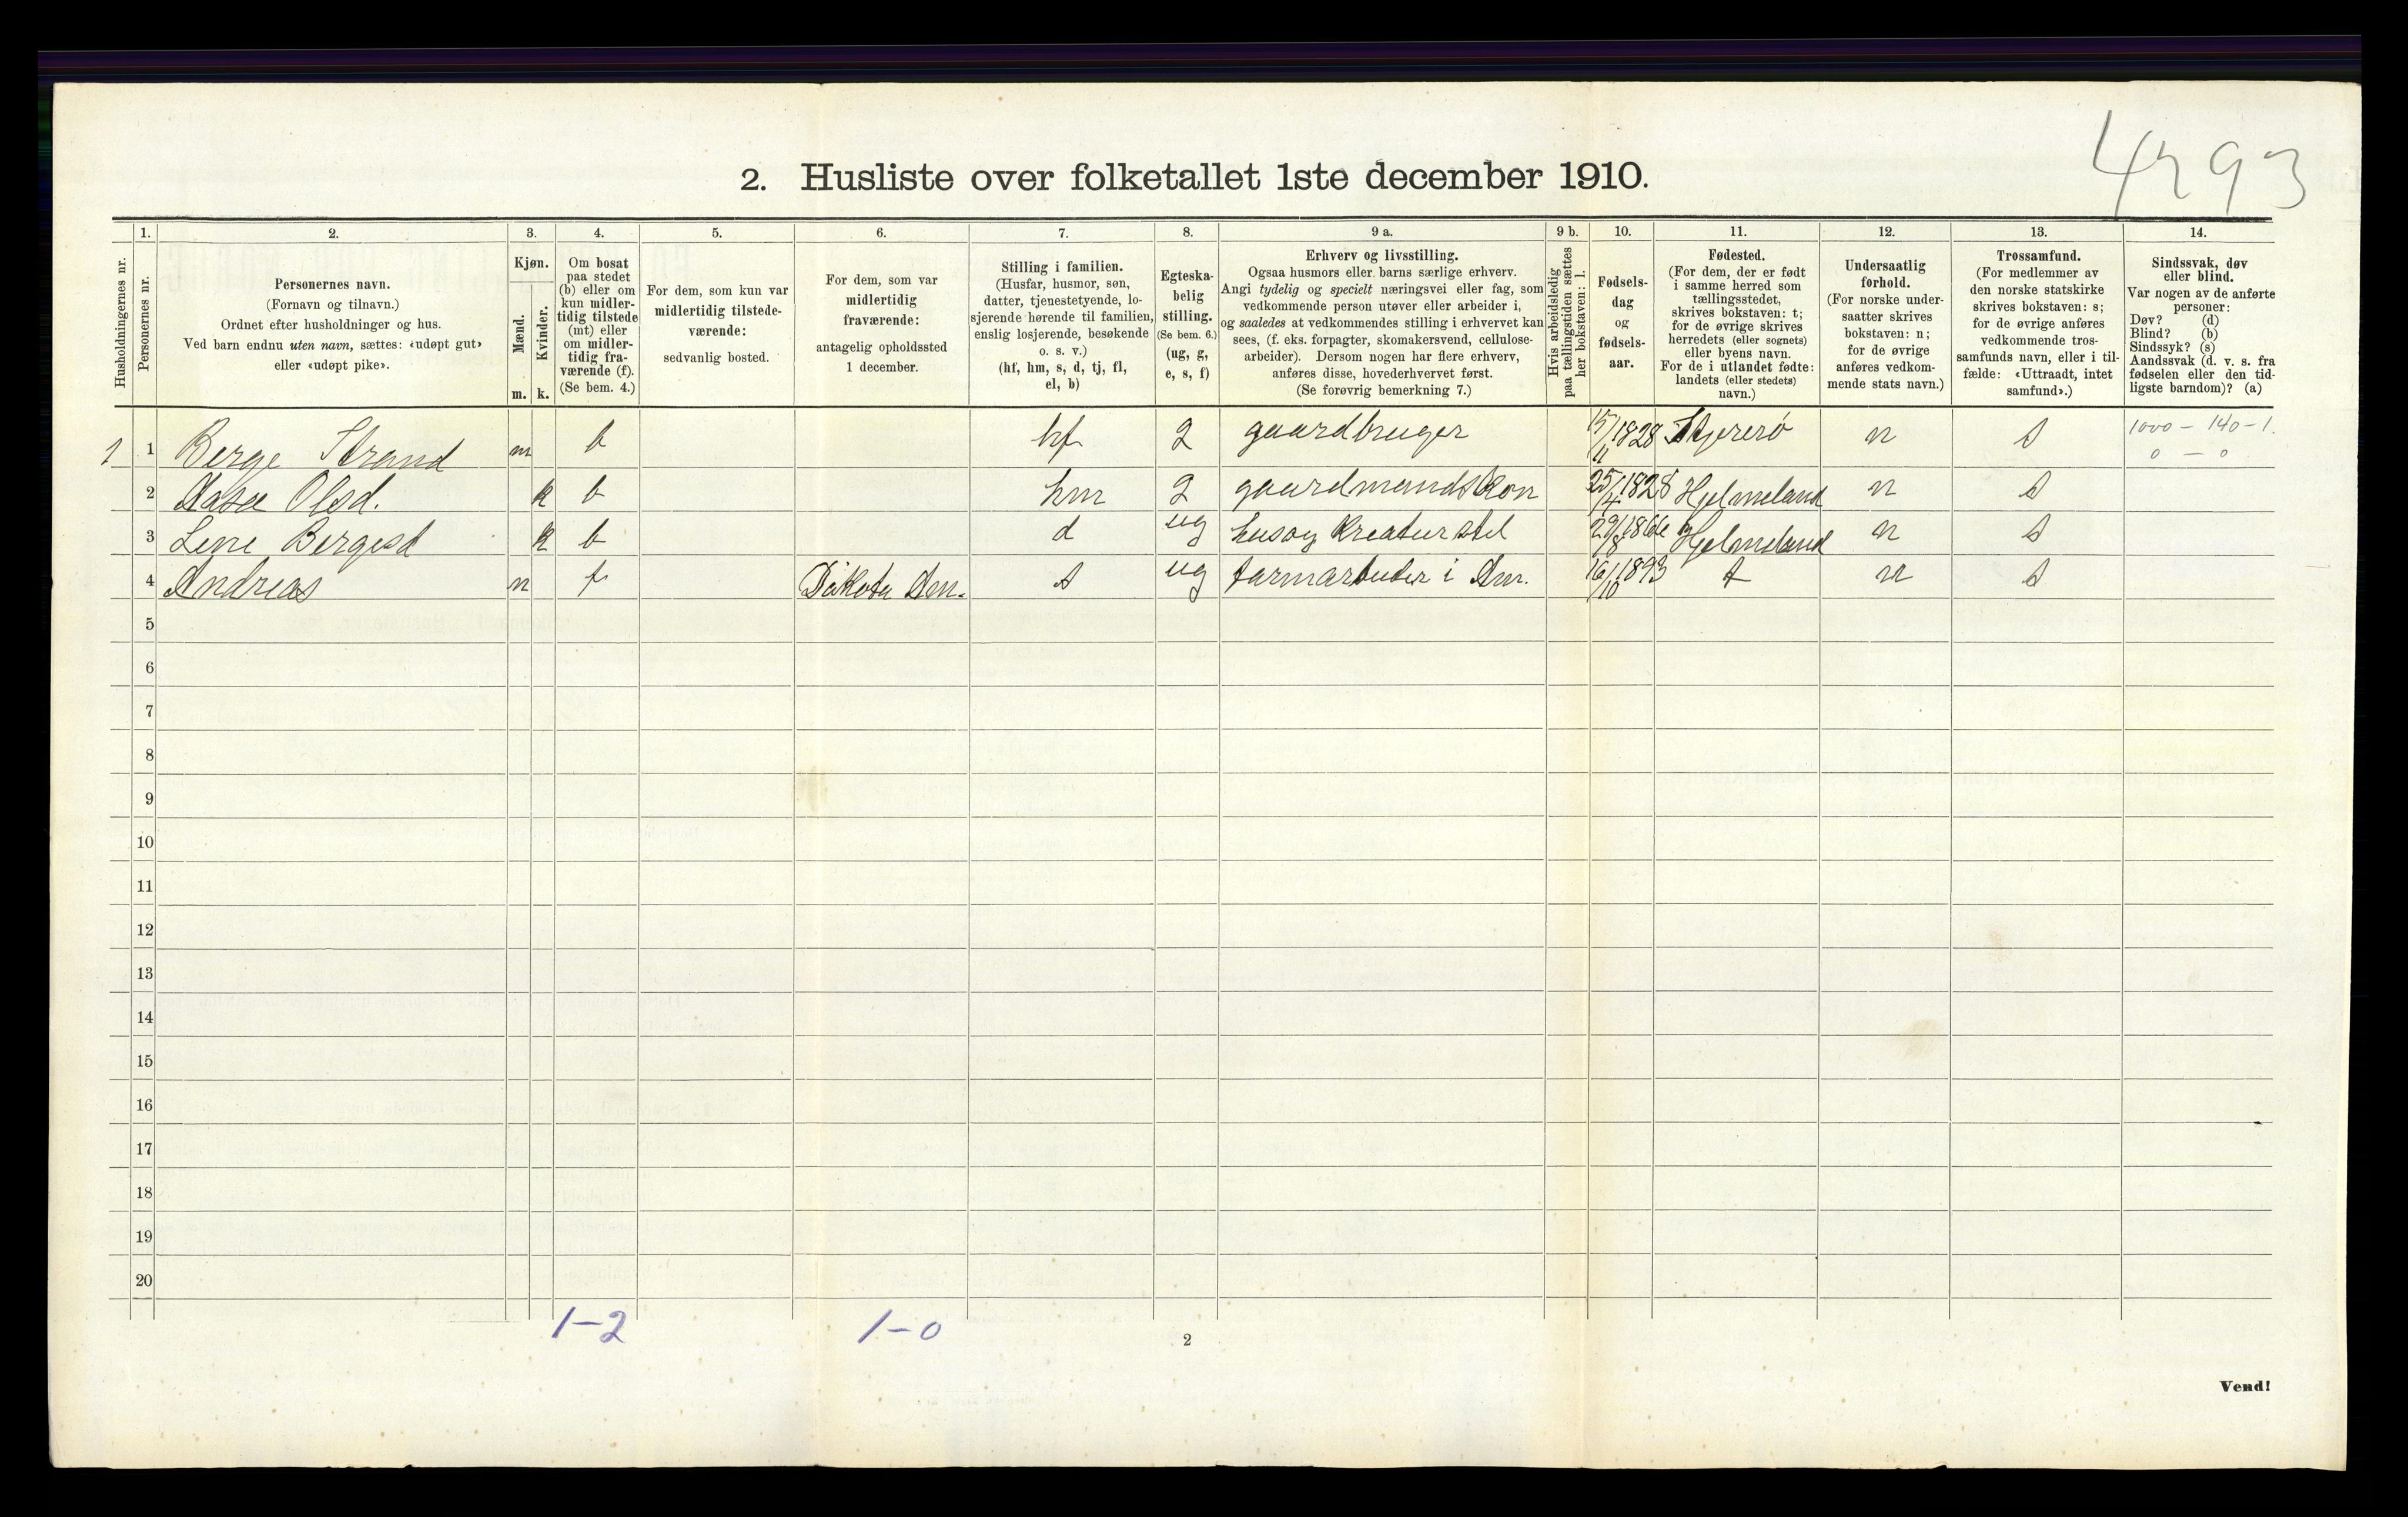 4293
2. Husliste over folketallet 1ste december 1910.
1. 2. 3. 4. 5. 6. 7. 8. 9 a. 9 b. 10. 11. 12. 13. 14.
Husholdningernes nr.
Personernes nr.
Personernes navn.
(Fornavn og tilnavn.)
Ordnet efter husholdninger og hus.
Ved barn endnu uten navn, sættes: «udøpt gut»
eller «udøpt pike».
Kjøn.
Mænd.
Kvinder.
m. k.
Om bosat
paa stedet
(b) eller om
kun midler-
tidig tilstede
(mt) eller
om midler-
tidig fra-
værende (f).
(Se bem. 4.)
For dem, som kun var
midlertidig tilstede-
værende:
sedvanlig bosted.
For dem, som var
midlertidig
fraværende:
antagelig opholdssted
1 december.
Stilling i familien.
(Husfar, husmor, søn,
datter, tjenestetyende, lo-
sjerende hørende til familien,
enslig losjerende, besøkende
o. s. v.)
(hf, hm, s, d, tj, fl,
el, b)
Egteska-
belig
stilling.
(Se bem. 6.)
(ug, g,
e, s, f)
Erhverv og livsstilling.
Ogsaa husmors eller barns særlige erhverv.
Angi tydelig og specielt næringsvei eller fag, som
vedkommende person utøver eller arbeider i,
og saaledes at vedkommendes stilling i erhvervet kan
sees, (f. eks. forpagter, skomakersvend, cellulose-
arbeider). Dersom nogen har flere erhverv,
anføres disse, hovederhvervet først.
(Se forøvrig bemerkning 7.)
Hvis arbeidsledig
paa tællingstiden sættes
her bokstaven: l.
Fødsels-
dag
og
fødsels-
aar.
Fødested.
(For dem, der er født
i samme herred som
tællingsstedet,
skrives bokstaven: t;
for de øvrige skrives
herredets (eller sognets)
eller byens navn.
For de i utlandet fødte:
landets (eller stedets)
navn.)
Undersaatlig
forhold.
(For norske under-
saatter skrives
bokstaven: n;
for de øvrige
anføres vedkom-
mende stats navn.)
Trossamfund.
(For medlemmer av
den norske statskirke
skrives bokstaven: s;
for de øvrige anføres
vedkommende tros-
samfunds navn, eller i til-
fælde: «Uttraadt, intet
samfund».)
Sindssvak, døv
eller blind.
Var nogen av de anførte
personer:
Døv? (d)
Blind? (b)
Sindssyk? (s)
Aandssvak (d. v. s. fra
fødselen eller den tid-
ligste barndom)? (a)
1 1 Berge Strand m b hf g gaardbruger 15/11 1828 Stjererø n s 1000 - 140 - 1.
0 - 0
2 Aasa Olsd. k b hm g gaardmandskon 25/4 1828 Hjelmeland n s
3 Lene Bergesd k b d ug hus og Kreaturstel 29/8 1866 Hjelmeland n s
4 Andreas m f Dakota Am. s ug farmarbeider i Am. 16/10 1893 t n s
5
6
7
8
9
10
11
12
13
14
15
16
17
18
19
20
1-2 1-0
2
Vend!